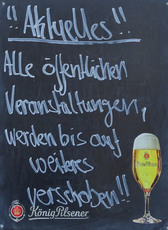 "Aktuelles"!!
Alle öffentlichen
Veranstaltungen,
werden bis auf
weiters
verschoben!!
König Pilsener